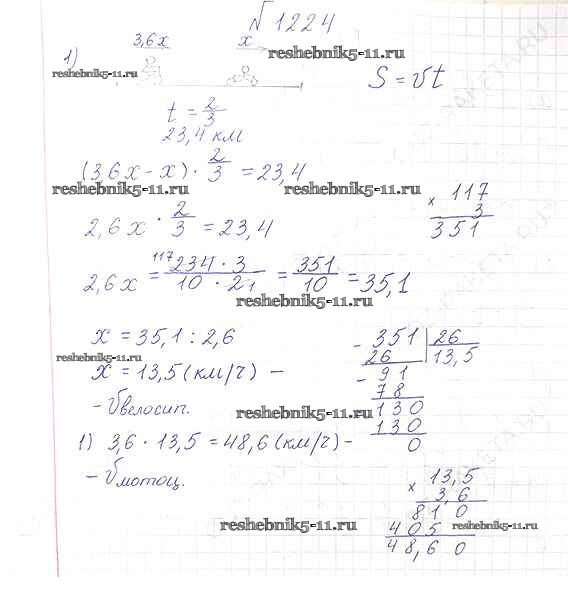 №1224
1) 3,6x x
reshebnik5-11.ru
reshebnik5-11.ru
S = vt
t = 2/3
23,4 км
(3,6x - x) · 2/3 = 23,4
reshebnik5-11.ru reshebnik5-11.ru
2,6x · 2/3 = 23,4
× 117
3
351
2,6x = 117 234 · 3 / 10 · 2 1 = 351/10 = 35,1
reshebnik5-11.ru
x = 35,1 : 2,6
reshebnik5-11.ru
x = 13,5 (км/ч) -
- v велосип.
- 351 | 26
26 | 13,5
- 91
78
130
130
0
reshebnik5-11.ru
1) 3,6 · 13,5 = 48,6 (км/ч) -
- v мотоц.
× 13,5
3,6
810
405
48,60
reshebnik5-11.ru reshebnik5-11.ru